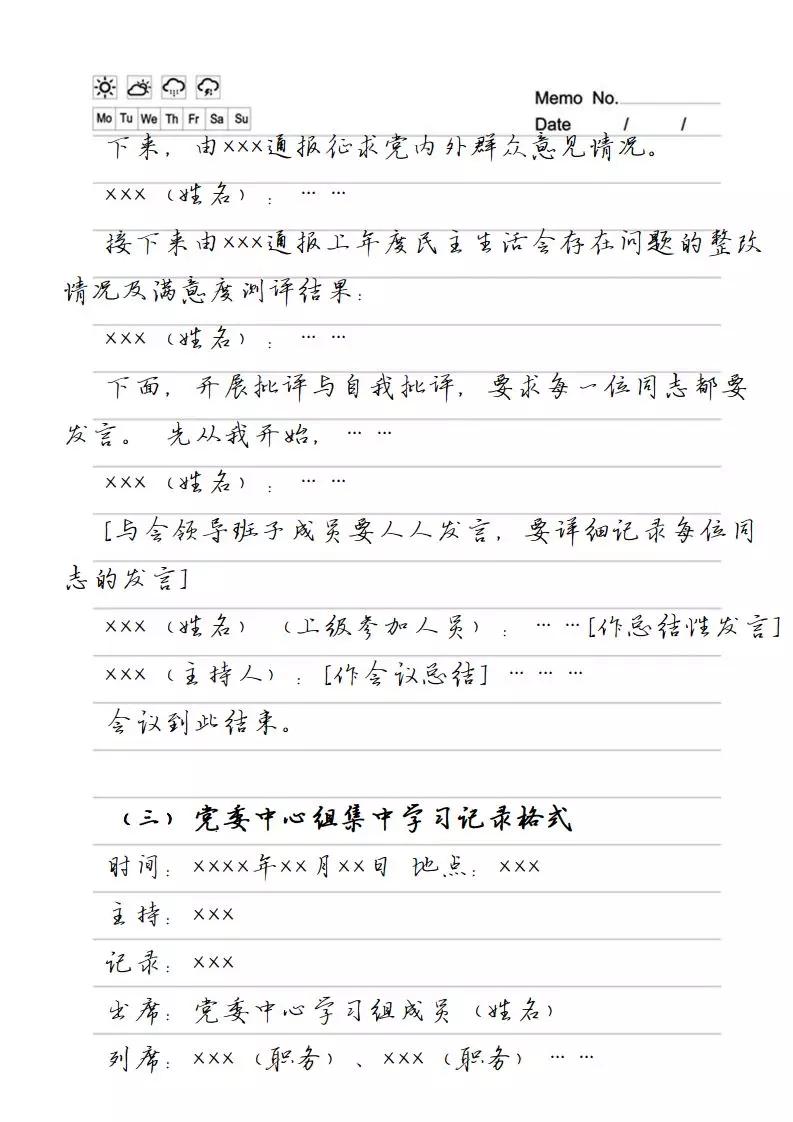 Memo No.
Mo Tu We Th Fr Sa Su
Date / /
下来，由×××通报征求党内外群众意见情况。
×××（姓名）：……
接下来由×××通报上年度民主生活会存在问题的整改
情况及满意度测评结果：
×××（姓名）：……
下面，开展批评与自我批评，要求每一位同志都要
发言。 先从我开始，……
×××（姓名）：……
[与会领导班子成员要人人发言，要详细记录每位同
志的发言]
×××（姓名）（上级参加人员）：……[作总结性发言]
×××（主持人）：[作会议总结]………
会议到此结束。
（三）党委中心组集中学习记录格式
时间：××××年××月××日 地点：×××
主持：×××
记录：×××
出席：党委中心学习组成员（姓名）
列席：×××（职务）、×××（职务）……